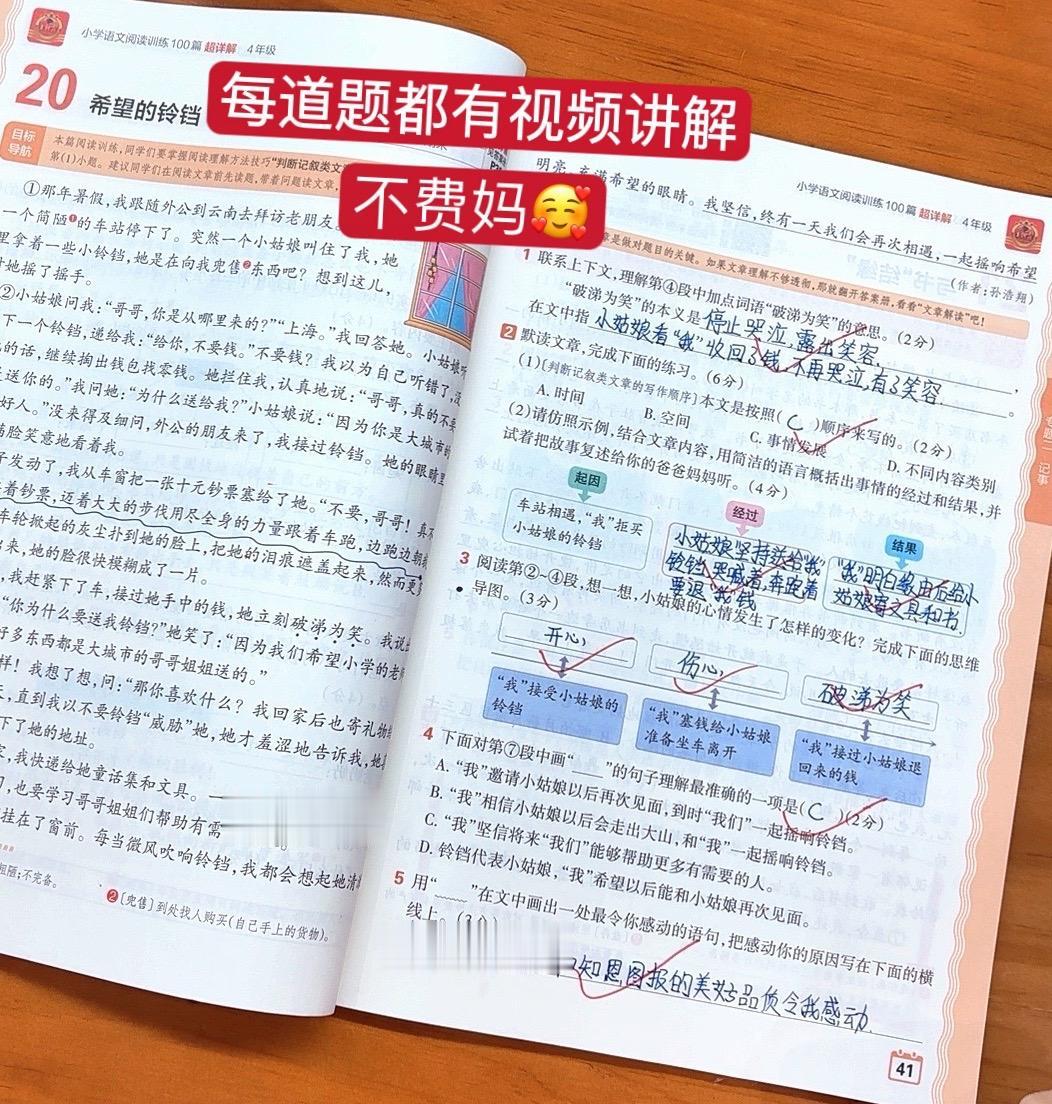 小学语文阅读训练100篇 超详解 4年级
20 希望的铃铛
每道题都有视频讲解
不费妈
目标导航
本篇阅读训练,同学们要掌握阅读理解方法技巧“判断记叙类文
第(1)小题。建议同学们在阅读文章前先读题,带着问题读文章,
①那年暑假,我跟随外公到云南去拜访老朋友
一个简陋❶的车站停下了。突然一个小姑娘叫住了我,她
里拿着一些小铃铛,她是在向我兜售❷东西吧?想到这儿,
她摇了摇手。
②小姑娘问我:“哥哥,你是从哪里来的?”“上海。”我回答她。小姑娘
下一个铃铛,递给我:“给你,不要钱。”不要钱?我以为自己听错了,没
的话,继续掏出钱包找零钱。她拦住我,认真地说:“哥哥,真的不
送你的。”我问她:“为什么送给我?”小姑娘说:“因为你是大城市的
好人。”没来得及细问,外公的朋友来了,我接过铃铛。她的眼睛
满脸笑意地看着我。
子发动了,我从车窗把一张十元钞票塞给了她。“不要,哥哥!真
着钞票,迈着大大的步伐用尽全身的力量跟着车跑,边跑边
车轮掀起的灰尘扑到她的脸上,把她的泪痕遮盖起来,然而更
出来,她的脸很快模糊成了一片。
,我赶紧下了车,接过她手中的钱,她立刻破涕为笑。我说
“你为什么要送我铃铛?”她笑了:“因为我们希望小学的老师
好多东西都是大城市的哥哥姐姐送的。”
样!我想了想,问:“那你喜欢什么?我回家后也寄礼物
,直到我以不要铃铛“威胁”她,她才羞涩地告诉我,她
下了她的地址。
,我快递给她童话集和文具。
,也要学习哥哥姐姐们帮助有需
挂在了窗前。每当微风吹响铃铛,我都会想起她清
粗陋;不完备。
❷[兜售]到处找人购买(自己手上的货物)。
小学语文阅读训练100篇 超详解 4年级
明亮、充满希望的眼睛。我坚信,终有一天我们会再次相遇,一起摇响希望
(作者:孙浩翔)
章是做对题目的关键。如果文章理解不够透彻,那就翻开答案册,看看“文章解读”吧!
1 联系上下文,理解第④段中加点词语“破涕为笑”的意思。(2分)
“破涕为笑”的本义是停止哭泣,露出笑容,
在文中指小姑娘看“我”收回了钱,不再哭泣,有了笑容。
2 默读文章,完成下面的练习。(6分)
(1)[判断记叙类文章的写作顺序]本文是按照(C)顺序来写的。(2分)
A. 时间 B. 空间 C. 事情发展 D. 不同内容类别
(2)请仿照示例,结合文章内容,用简洁的语言概括出事情的经过和结果,并
试着把故事复述给你的爸爸妈妈听。(4分)
起因
车站相遇,“我”拒买
小姑娘的铃铛
经过
小姑娘坚持送给“我”
铃铛,哭喊着,奔跑着
要退“我”钱
结果
“我”明白缘由后给小
姑娘寄文具和书.
3 阅读第②~④段,想一想,小姑娘的心情发生了怎样的变化?完成下面的思维
导图。(3分)
开心,
伤心,
破涕为笑
“我”接受小姑娘的
铃铛
“我”塞钱给小姑娘
准备坐车离开
“我”接过小姑娘退
回来的钱
4 下面对第⑦段中画“____”的句子理解最准确的一项是(C)(2分)
A. “我”邀请小姑娘以后再次见面,到时“我们”一起摇响铃铛。
B. “我”相信小姑娘以后会走出大山,和“我”一起摇响铃铛。
C. “我”坚信将来“我们”能够帮助更多有需要的人。
D. 铃铛代表小姑娘,“我”希望以后能和小姑娘再次见面。
5 用“____”在文中画出一处最令你感动的语句,把感动你的原因写在下面的横
线上。(3分)
知恩图报的美好品质令我感动.
专题二 记事
41